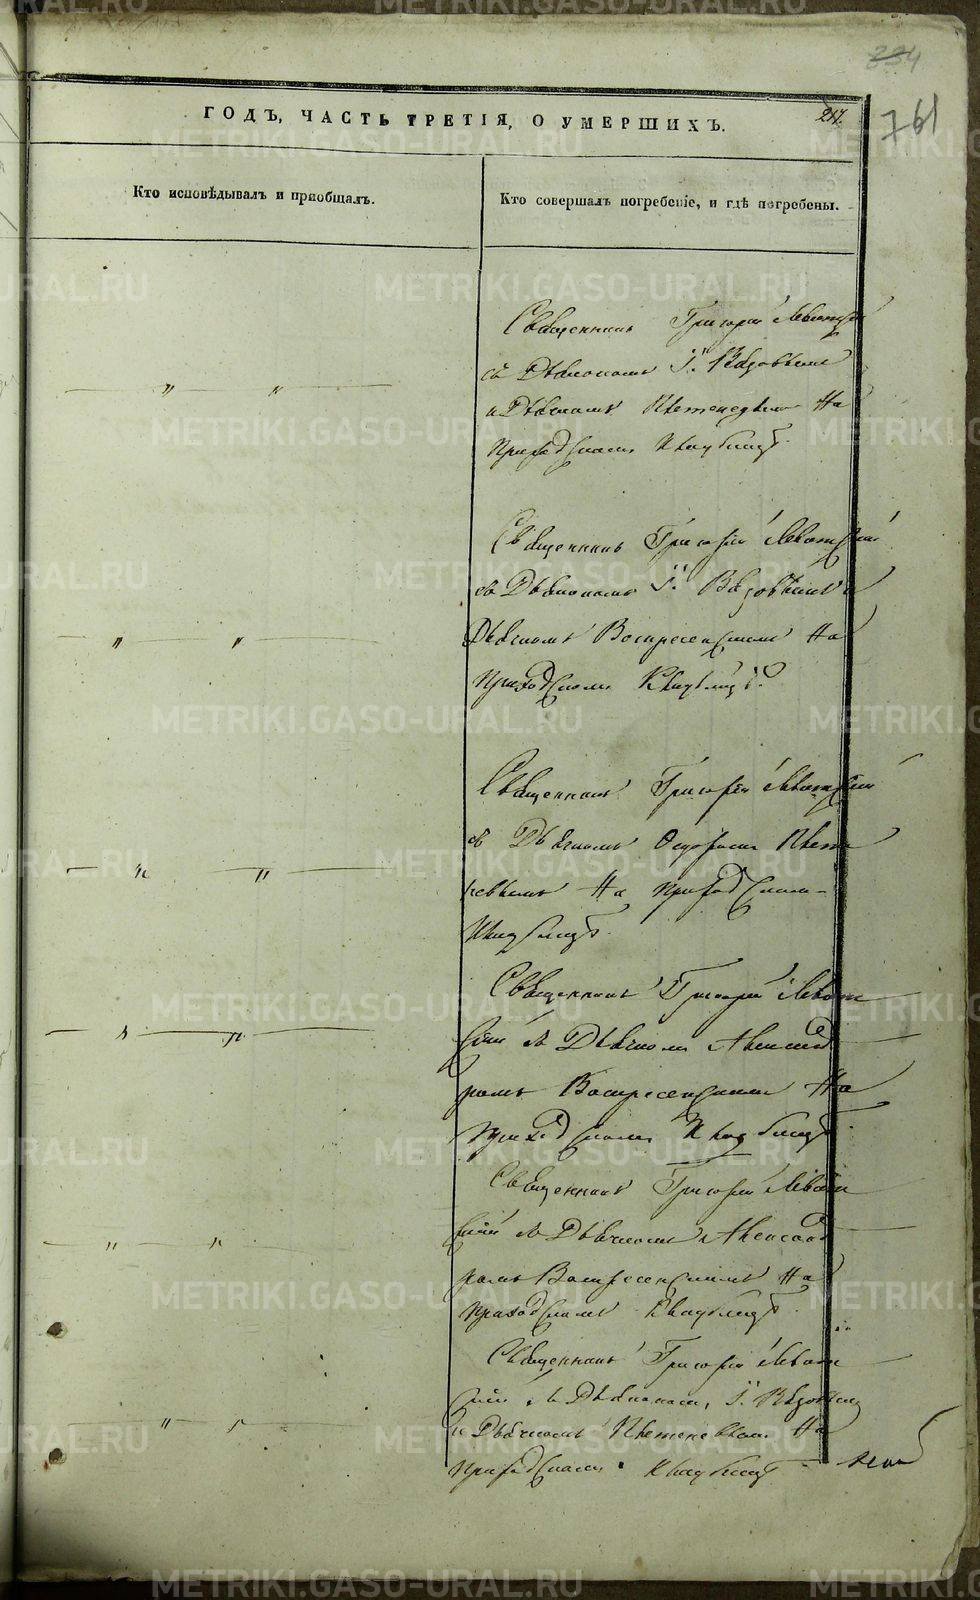 234
ГОДЪ, ЧАСТЬ ТРЕТІЯ, О УМЕРШИХЪ.
217.
761
Кто исповѣдывалъ и пріобщалъ.
Кто совершалъ погребеніе, и гдѣ погребены.
Священникъ Григорій Левитскій
съ Діакономъ І.
и Дьячкомъ На
Приходскомъ Кладбищѣ.
Священникъ Григорій Левитскій
съ Діакономъ І.
Дьячкомъ Воскресенскимъ На
Приходскомъ Кладбищѣ.
Священникъ Григорій Левитскій
съ Дьячкомъ
На Приходскомъ
Кладбищѣ.
Священникъ Григорій Левит
скій съ Дьячкомъ Александ
ромъ Воскресенскимъ На
Приходскомъ Кладбищѣ.
Священникъ Григорій Левит
скій съ Дьячкомъ Александ
ромъ Воскресенскимъ На
Приходскомъ Кладбищѣ.
Священникъ Григорій Левит
скій съ Діакономъ І.
и Дьячкомъ На
Приходскомъ Кладбищѣ
METRIKI.GASO-URAL.RU